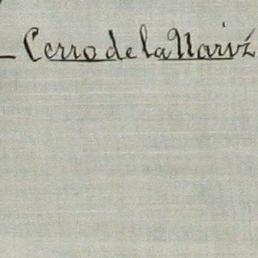 Cerro de la Nariź